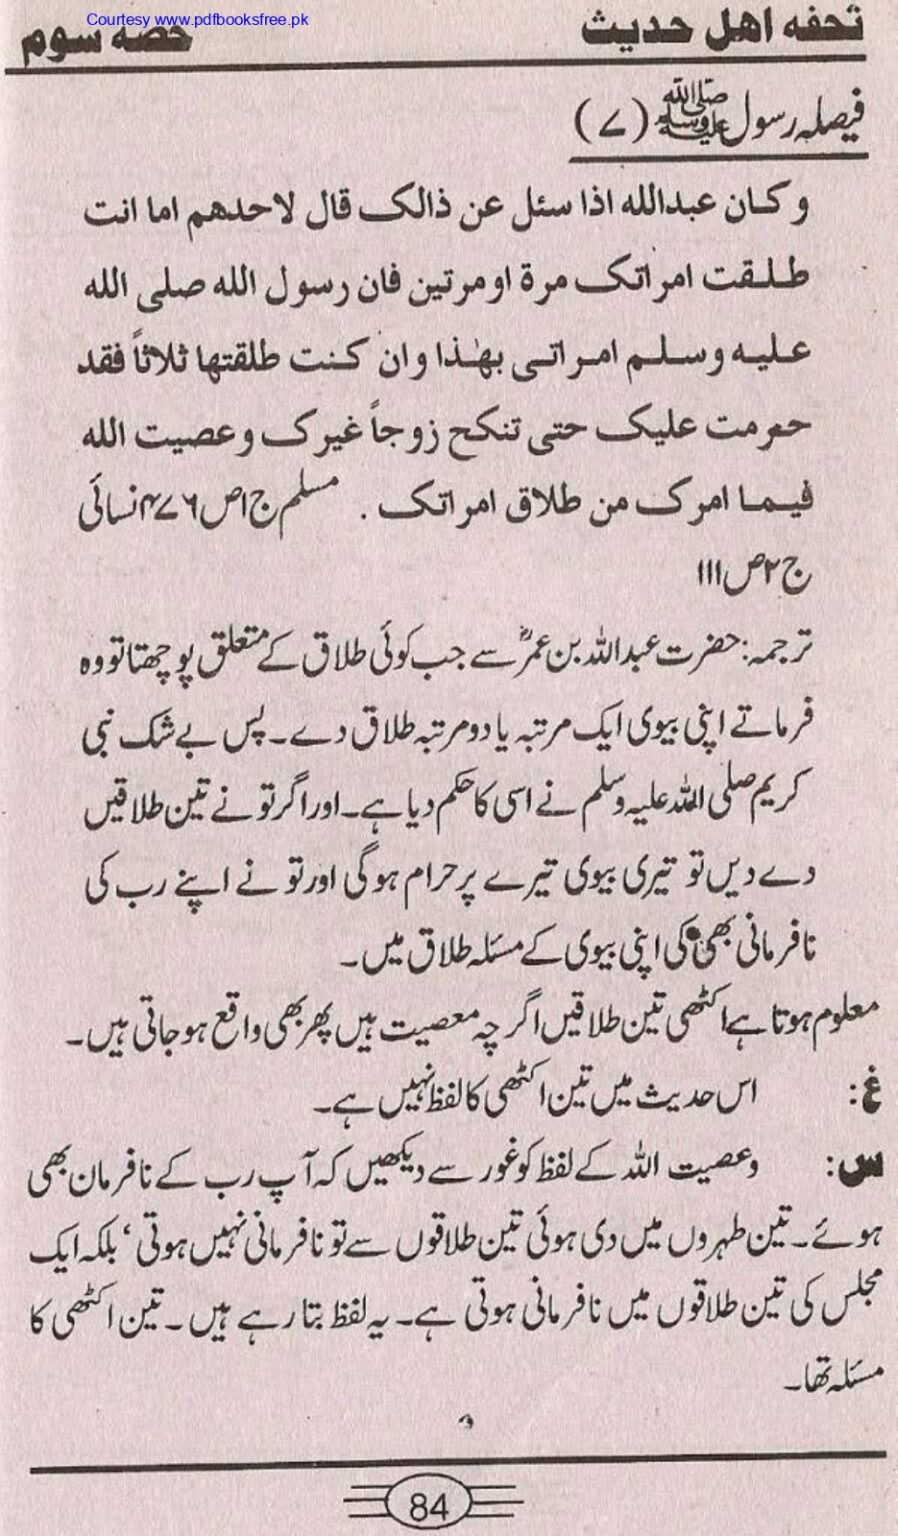 Courtesy www.pdfbooksfree.pk
تحفه اهل حديث حصه سوم
فیصلہ رسول ﷺ (۷)
و كان عبدالله اذا سئل عن ذالك قال لاحدهم اما انت
طلقت امراتك مرة او مرتين فان رسول الله صلى الله
عليه وسلم امراتى بهٰذا وان كنت طلقتها ثلاثاً فقد
حرمت عليك حتى تنكح زوجاً غيرك وعصيت الله
فيما امرك من طلاق امراتك . مسلم ج۱ص۴۷۶ نسائی
ج۲ص۱۱۱
ترجمہ: حضرت عبداللہ بن عمرؓ سے جب کوئی طلاق کے متعلق پوچھتا تو وہ
فرماتے اپنی بیوی ایک مرتبہ یا دو مرتبہ طلاق دے۔ پس بے شک نبی
کریم صلی اللہ علیہ وسلم نے اسی کا حکم دیا ہے۔ اور اگر تو نے تین طلاقیں
دے دیں تو تیری بیوی تیرے پر حرام ہوگی اور تو نے اپنے رب کی
نافرمانی بھی کی اپنی بیوی کے مسئلہ طلاق میں۔
معلوم ہوتا ہے اکٹھی تین طلاقیں اگر چہ معصیت ہیں پھر بھی واقع ہوجاتی ہیں۔
غ: اس حدیث میں تین اکٹھی کا لفظ نہیں ہے۔
س: وعصیت اللہ کے لفظ کو غور سے دیکھیں کہ آپ رب کے نافرمان بھی
ہوئے۔ تین طہروں میں دی ہوئی تین طلاقوں سے تو نافرمانی نہیں ہوتی‘ بلکہ ایک
مجلس کی تین طلاقوں میں نافرمانی ہوتی ہے۔ یہ لفظ بتا رہے ہیں۔ تین اکٹھی کا
مسئلہ تھا۔
84